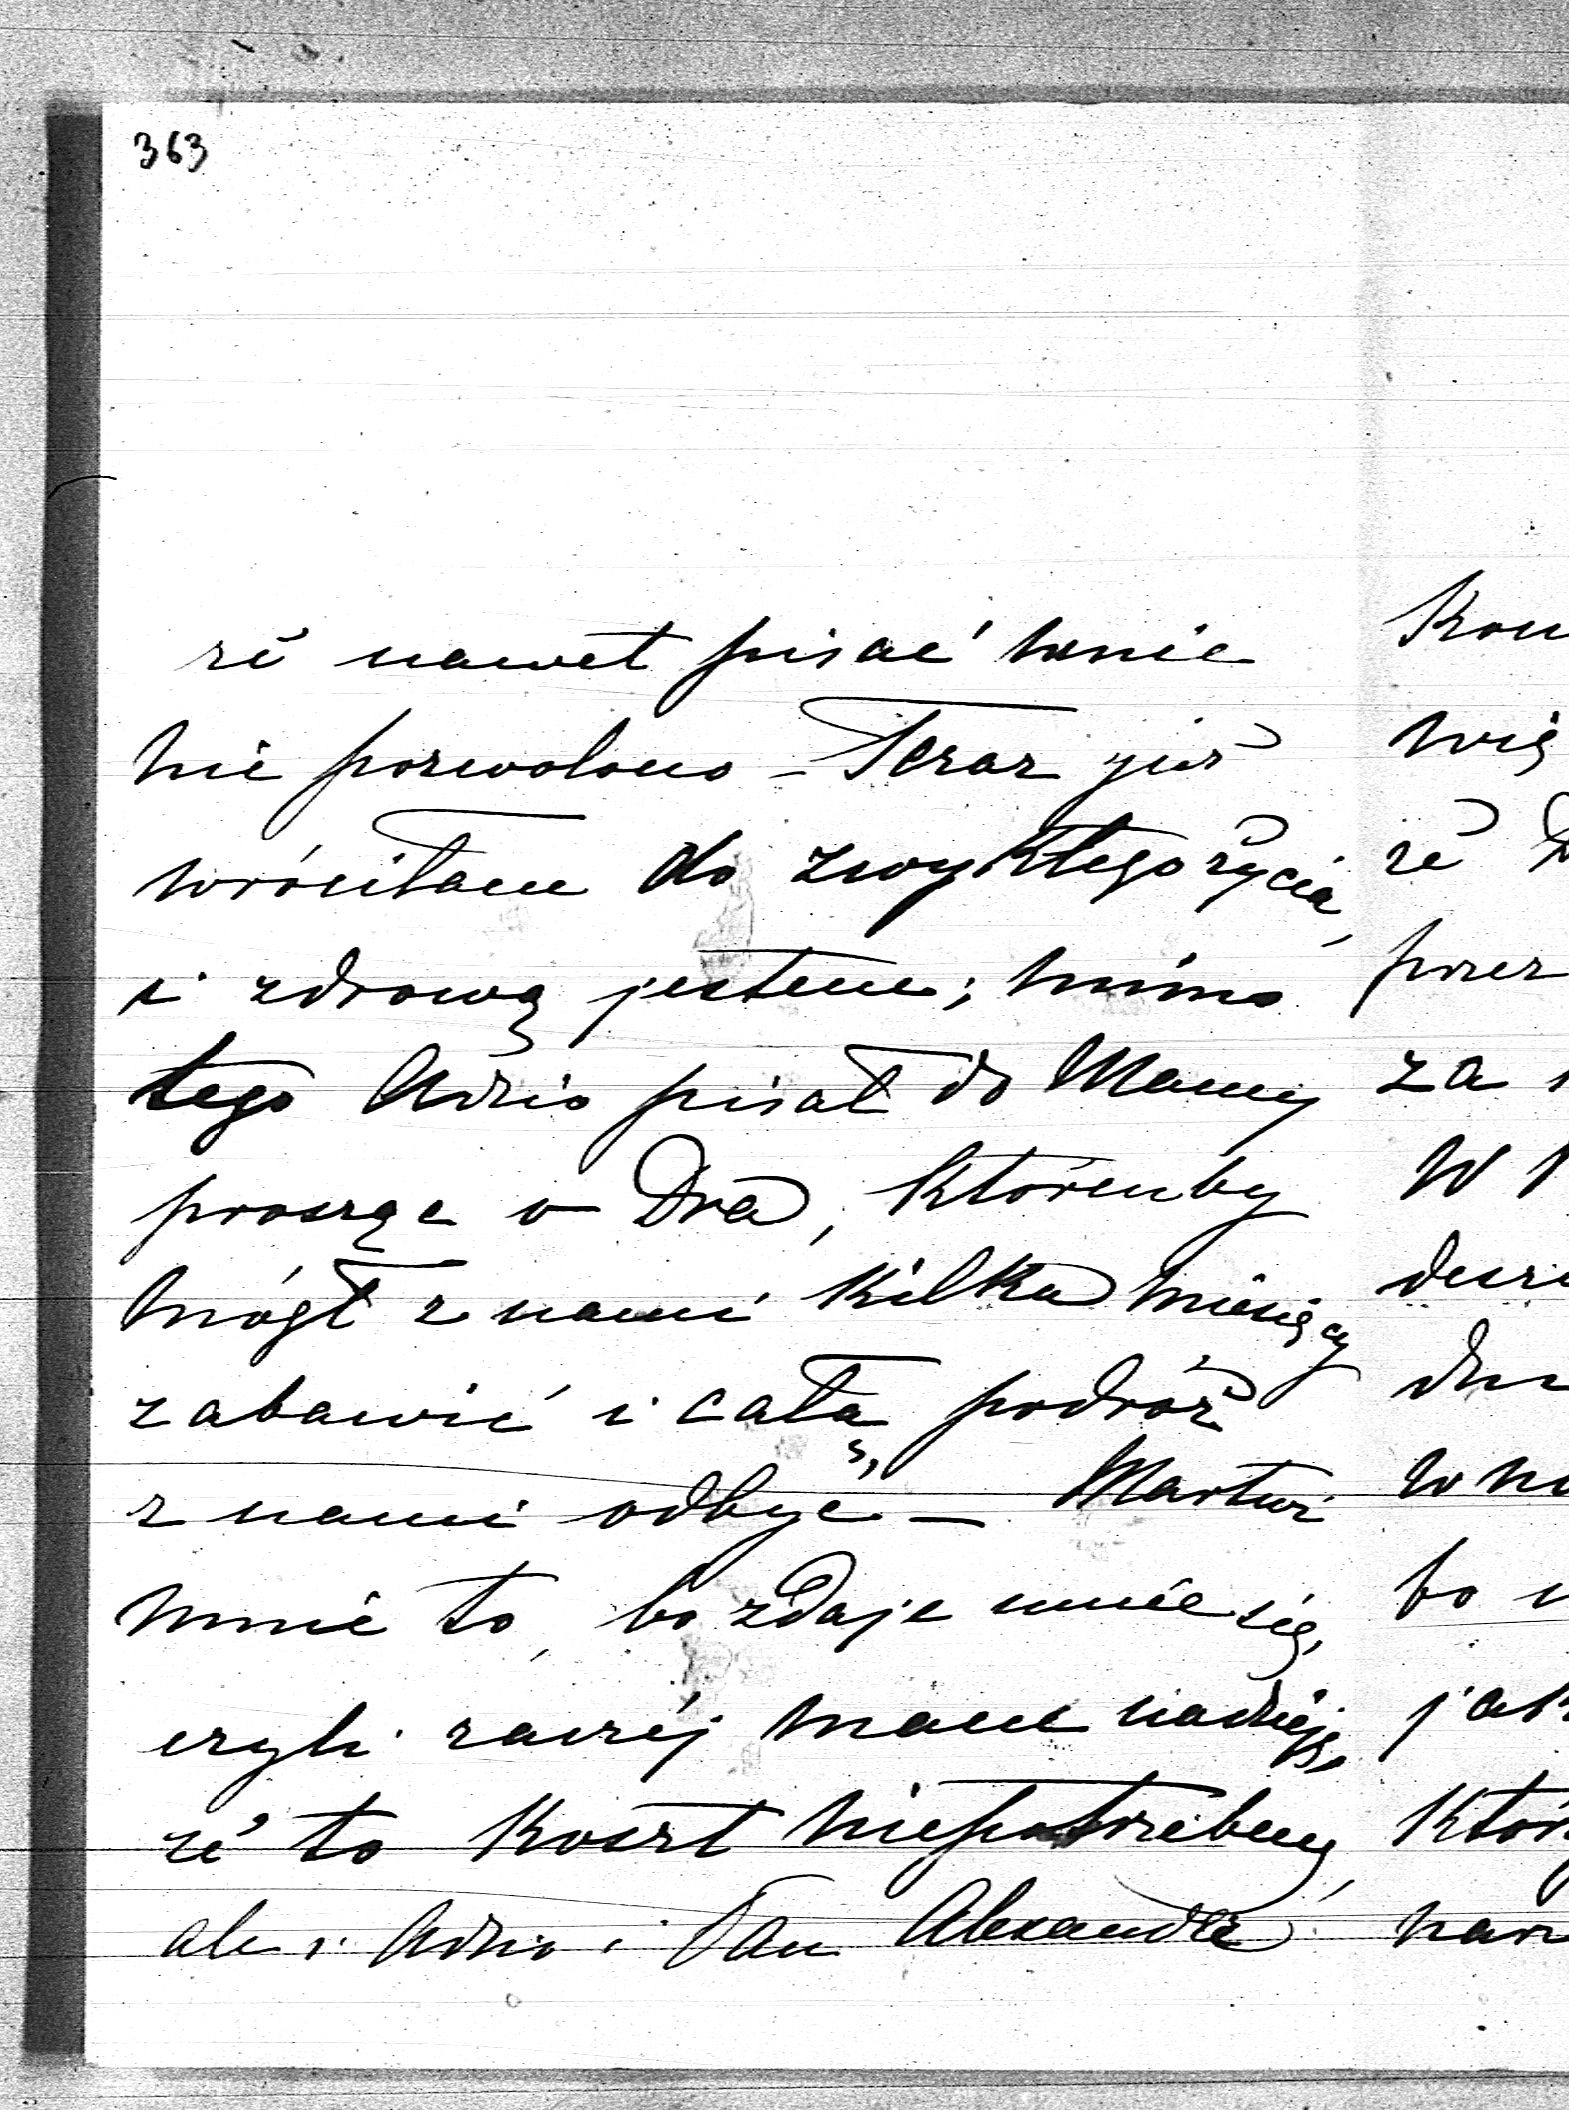 363
że nawet pisać mnie
nie pozwolono – Teraz już
wróciłam do zwykłego życia,
i zdrową jestem; mimo
tego Adzio pisał do Mamy
prosząc o Dra, którenby
mógł z nami kilka miesięcy
zabawić i całą podróż
z nami odbyć – Martwi
mnie to, bo zdaje mnie się,
czyli raczéj mam nadzieję,
że to koszt niepotrzebny,
ale i Adzio i Pan Alexander
Kon
wię
że
przez
za
W
dusz
dn
w
bo
jak
któr
nar